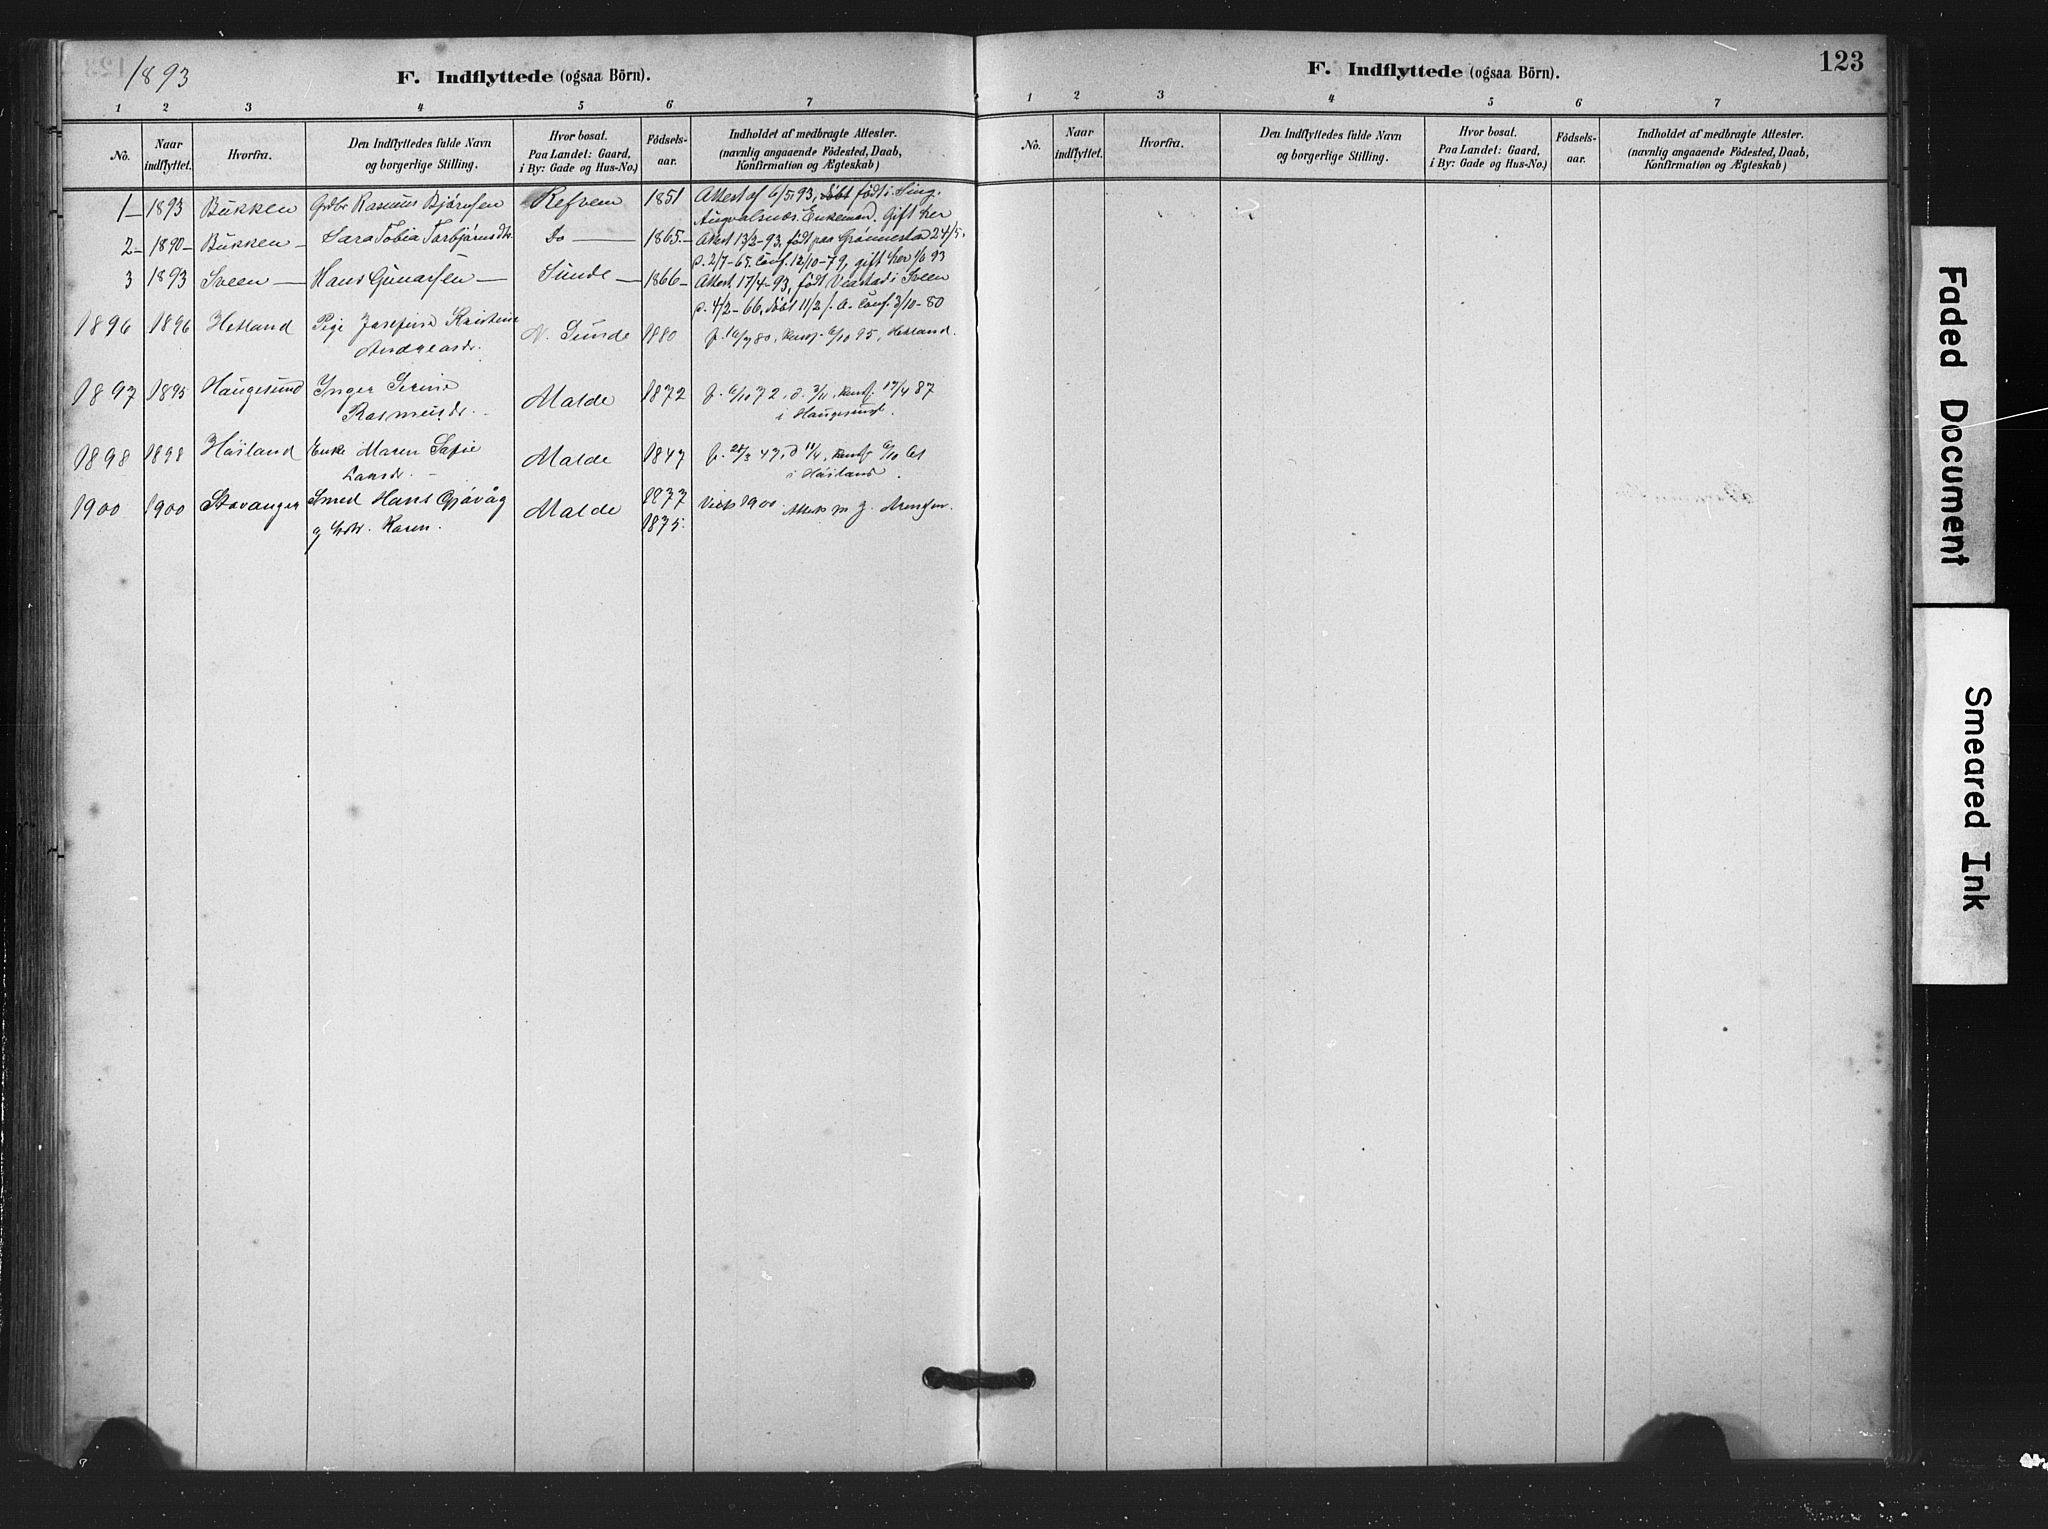 1893
F. Indflyttede (ogsaa Börn).
1 2 3 4 5 6 7
No.
Naar indflyttet.
Hvorfra.
Den Indflyttedes fulde Navn
og borgerlige Stilling.
Hvor bosat.
Paa Landet: Gaard,
i By: Gade og Hus-No.)
Födsels-
aar.
Indholdet af medbragte Attester.
(navnlig angaaende Födested, Daab,
Konfirmation og Ægteskab)
1 - 1893 Bukken Grdbr Rasmus Bjørnsen Refvem 1851 Attest af 6/5 93, döbt födt i
Augvalsnæs. Enkemand. Gift her
2 - 1890 - Bukken - Sara Tobia Torbjørnsdtr Do - 1865 - Attest 13/2-93, født paa Grønnestad 24/5
p. 2/7-65. Conf. 12/10-79, gift her 1/6 93
3 1893 Sveen - Hans Gunarsen - Sunde - 1866 - Attest 17/4-93, född i Sveen
p. 4/2-66, döbt 11/2 s. A. Conf. 3/10-80
1896 1896 Hetland Pige Josefine Kristine N. Sunde 1880 f. 16/7 80, konf. 6/10 95, Hetland.
Andreasdr.
1897 1895 Haugesund Inger Serine Malde 1872 f. 6/10 72, d. 3/11, konf. 17/4 87
Rasmusdr. i Haugesund.
1898 1898 Höiland Enke Maren Sofie Malde 1847 f. 28/3 47, d 11/4, konf 6/10 61
Larsdr. - i Höiland.
1900 1900 Stavanger Smed Hans Gjøvåg Malde 1877 1900
og Hstr. Karen. 1875.
F. Indflyttede (ogsaa Börn).
123
1 2 3 4 5 6 7
No.
Naar
indflyttet.
Hvorfra.
Den Indflyttedes fulde Navn
og borgerlige Stilling.
Hvor bosat.
Paa Landet: Gaard,
i By: Gade og Hus-No.)
Födsels-
aar.
Indholdet af medbragte Attester.
(navnlig angaaende Födested, Daab,
Konfirmation og Ægteskab)
Faded Document
Smeared Ink